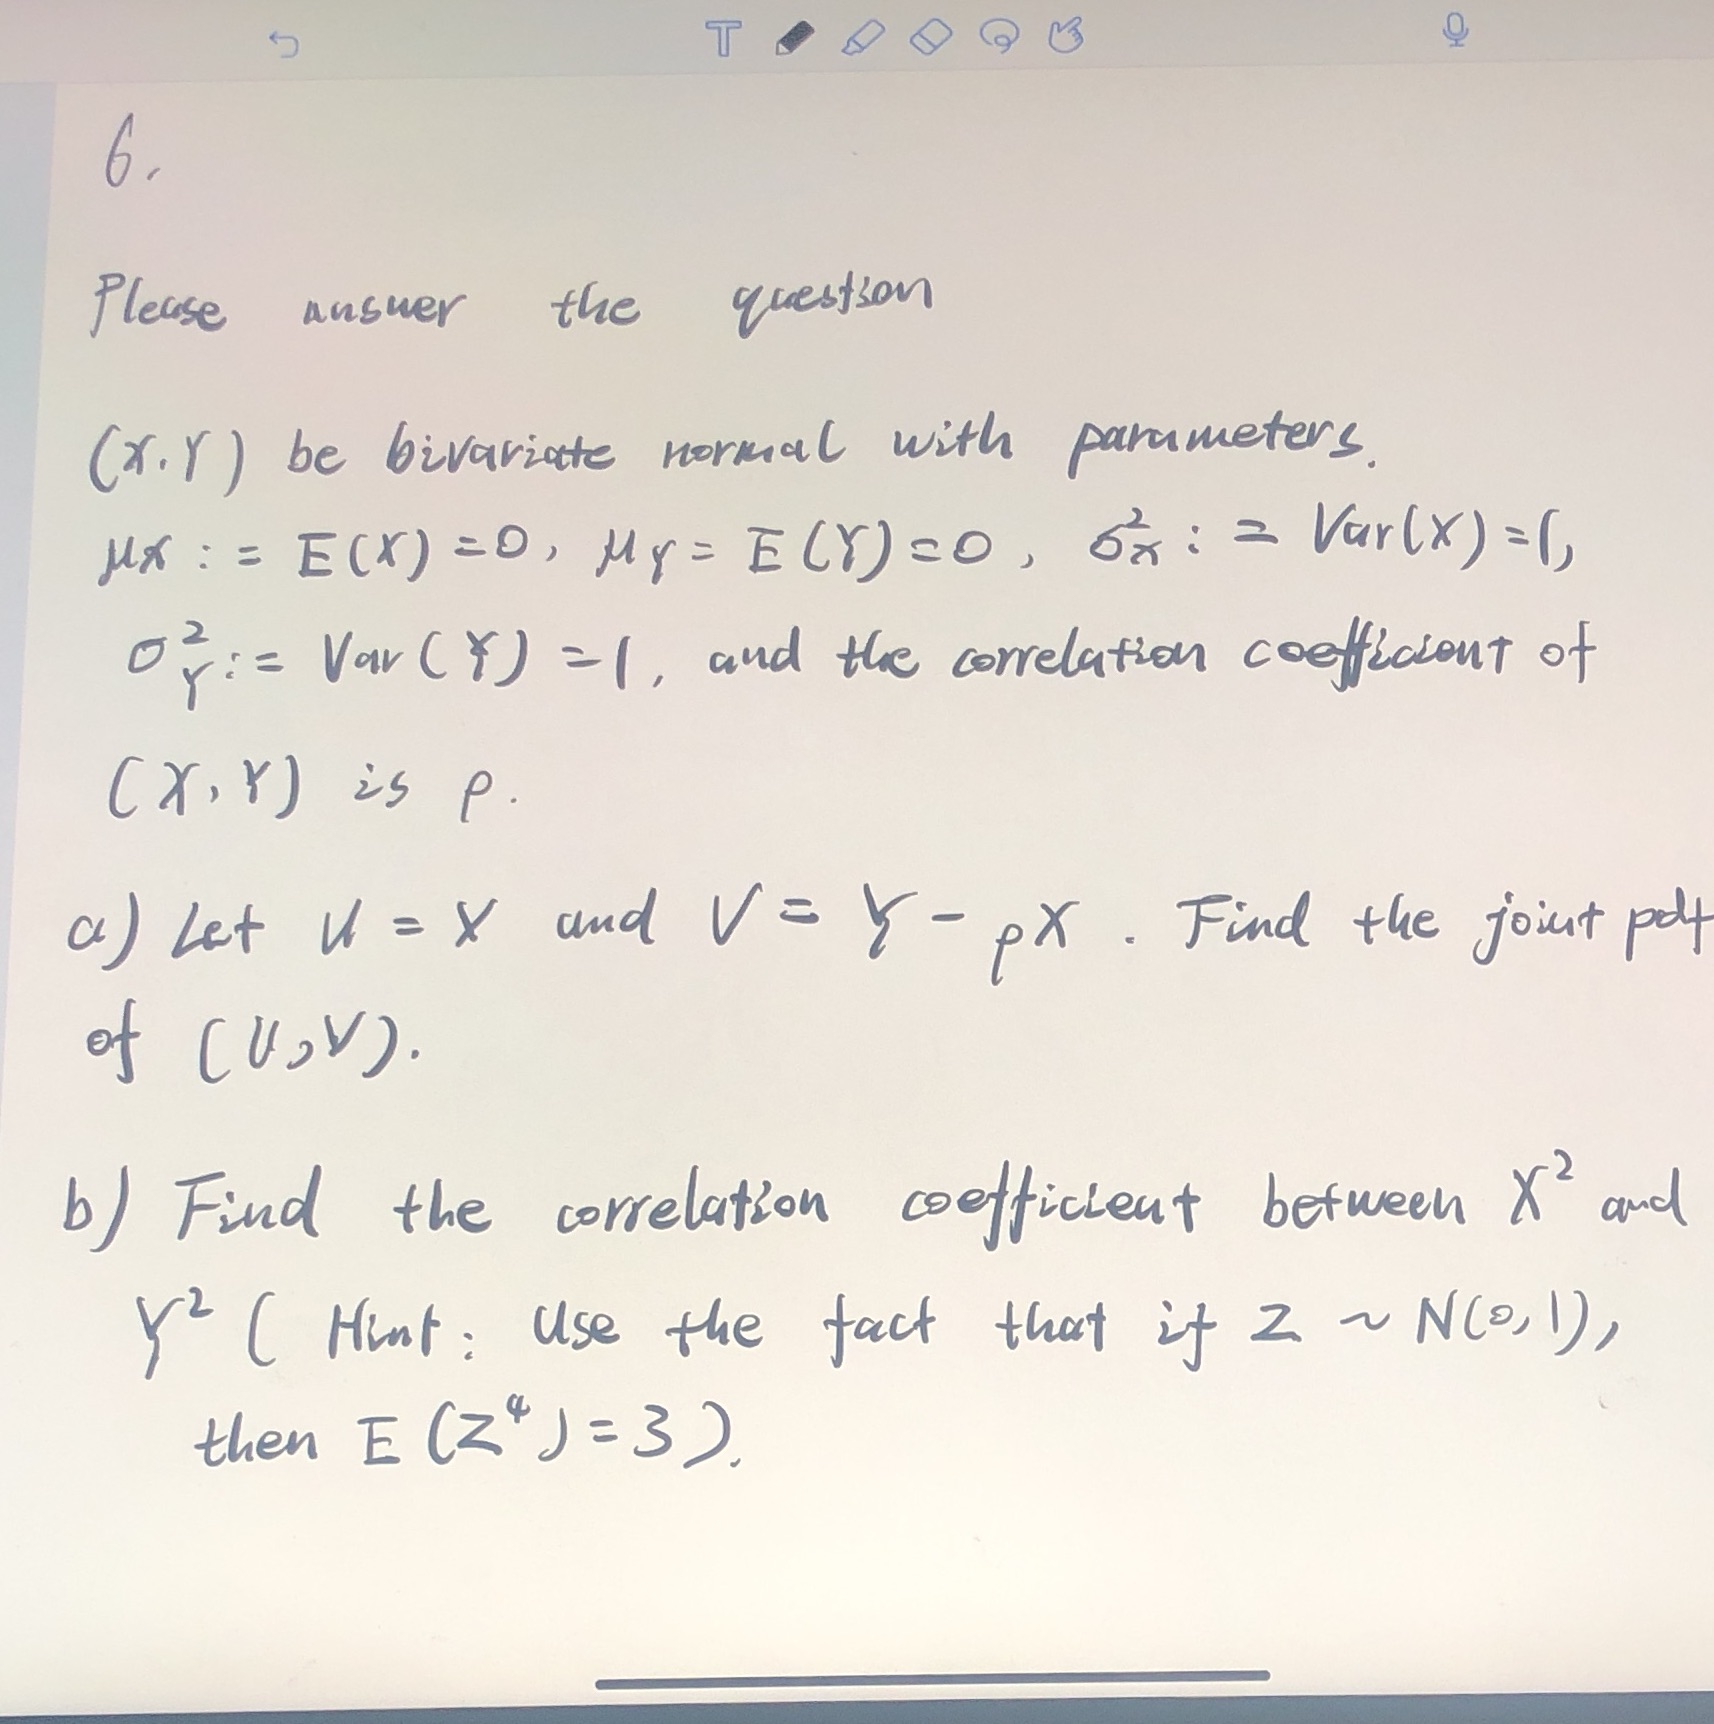 T
6.
Please answer the question
(X.Y) be bivariate normal with parameters.
μx := E(X)=0, μY = E(Y)=0, σ²x := Var(X)=1,
σ²Y := Var(Y)=1, and the correlation coefficient of
(X,Y) is ρ.
a) Let U = X and V = Y - ρX. Find the joint pdf
of (U,V).
b) Find the correlation coefficient between X² and
Y² ( Hint: Use the fact that if Z ~ N(0,1),
then E(Z⁴)=3).